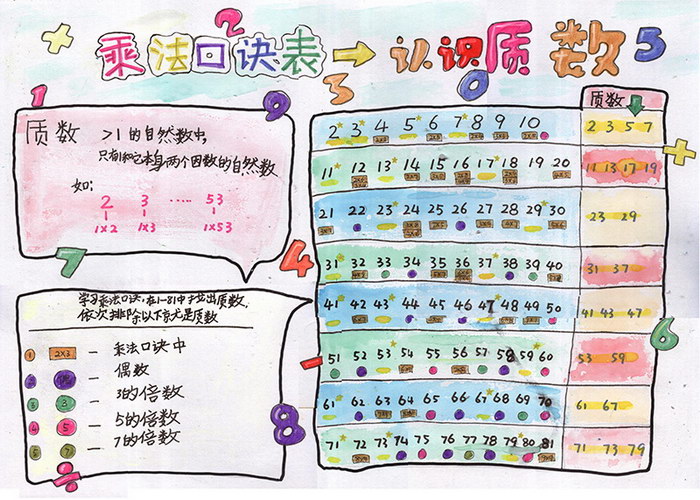 乘法口诀表→认识质数
质数 >1的自然数中,
只有1和它本身两个因数的自然数
如:
2 3 ····· 53
1×2 1×3 1×53
学习乘法口诀,在1-81中找出质数.
依次排除以下
① 2×3 — 乘法口诀中
② — 偶数
③ 3 — 3的倍数
④ 5 — 5的倍数
⑤ 7 — 7的倍数
质数
2 3 4 5 6 7 8 9 10
2 3 5 7
11 12 13 14 15 16 17 18 19 20
11 13 17 19
21 22 23 24 25 26 27 28 29 30
23 29
31 32 33 34 35 36 37 38 39 40
31 37
41 42 43 44 45 46 47 48 49 50
41 43 47
51 52 53 54 55 56 57 58 59 60
53 59
61 62 63 64 65 66 67 68 69 70
61 67
71 72 73 74 75 76 77 78 79 80 81
71 73 79
1
2
3
0
5
9
7
4
8
6